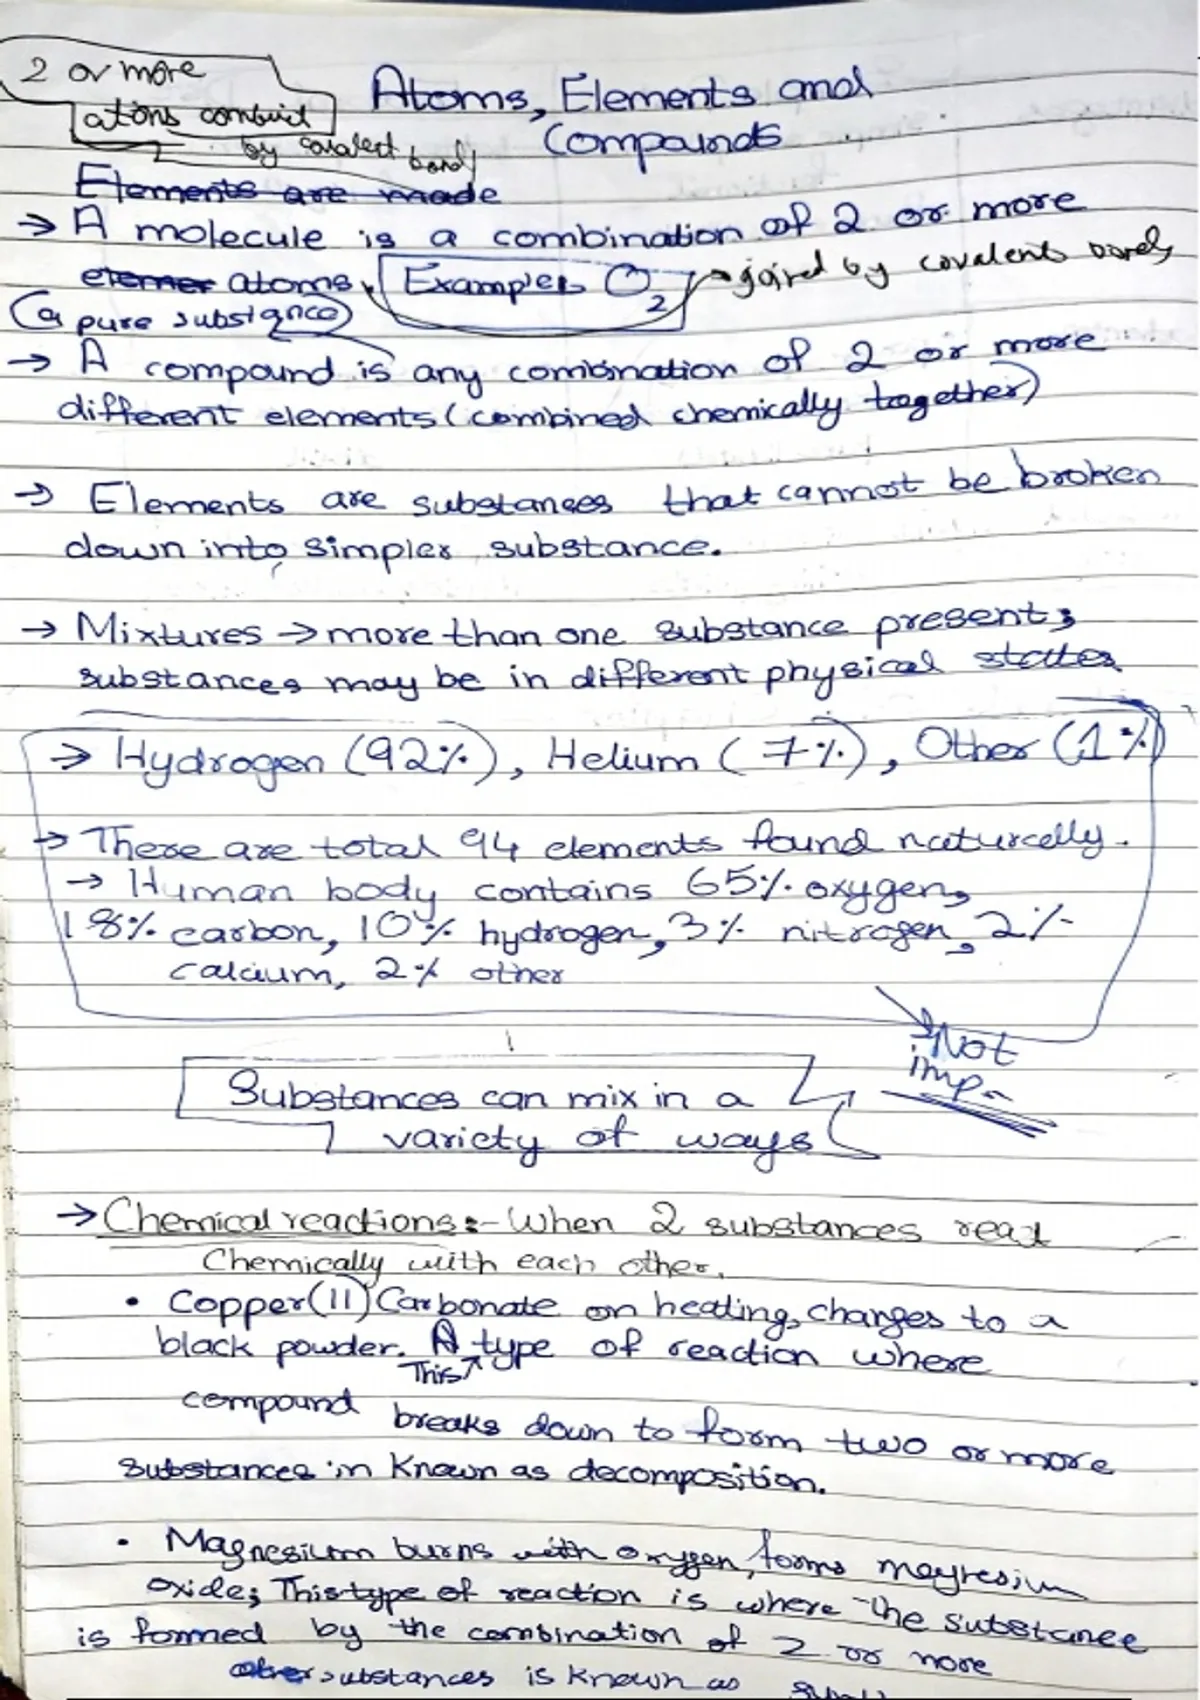 2 or more
atoms
by covalent bond
Atoms, Elements and
Compounds
Elements are made
→ A molecule is a combination of 2 or more
elemer atoms. Examples O2 → joined by covalent bonds
(a pure substance)
→ A compound is any combination of 2 or more
different elements (combined chemically together)
→ Elements are substances that cannot be broken
down into simpler substance.
→ Mixtures → more than one substance present;
substances may be in different physical states
→ Hydrogen (92%), Helium (7%), Other (1%)
→ There are total 94 elements found naturally.
→ Human body contains 65% oxygen,
18% carbon, 10% hydrogen, 3% nitrogen, 2%
calcium, 2% other
Not
imp.
Substances can mix in a
variety of ways
→ Chemical reactions:- When 2 substances react
Chemically with each other.
• Copper(II) Carbonate on heating, changes to a
black powder. A type of reaction where
This
compound breaks down to form two or more
substances in known as decomposition.
• Magnesium burns with oxygen, forms magnesium
oxide; This type of reaction is where the substance
is formed by the combination of 2 or more
substances is known as